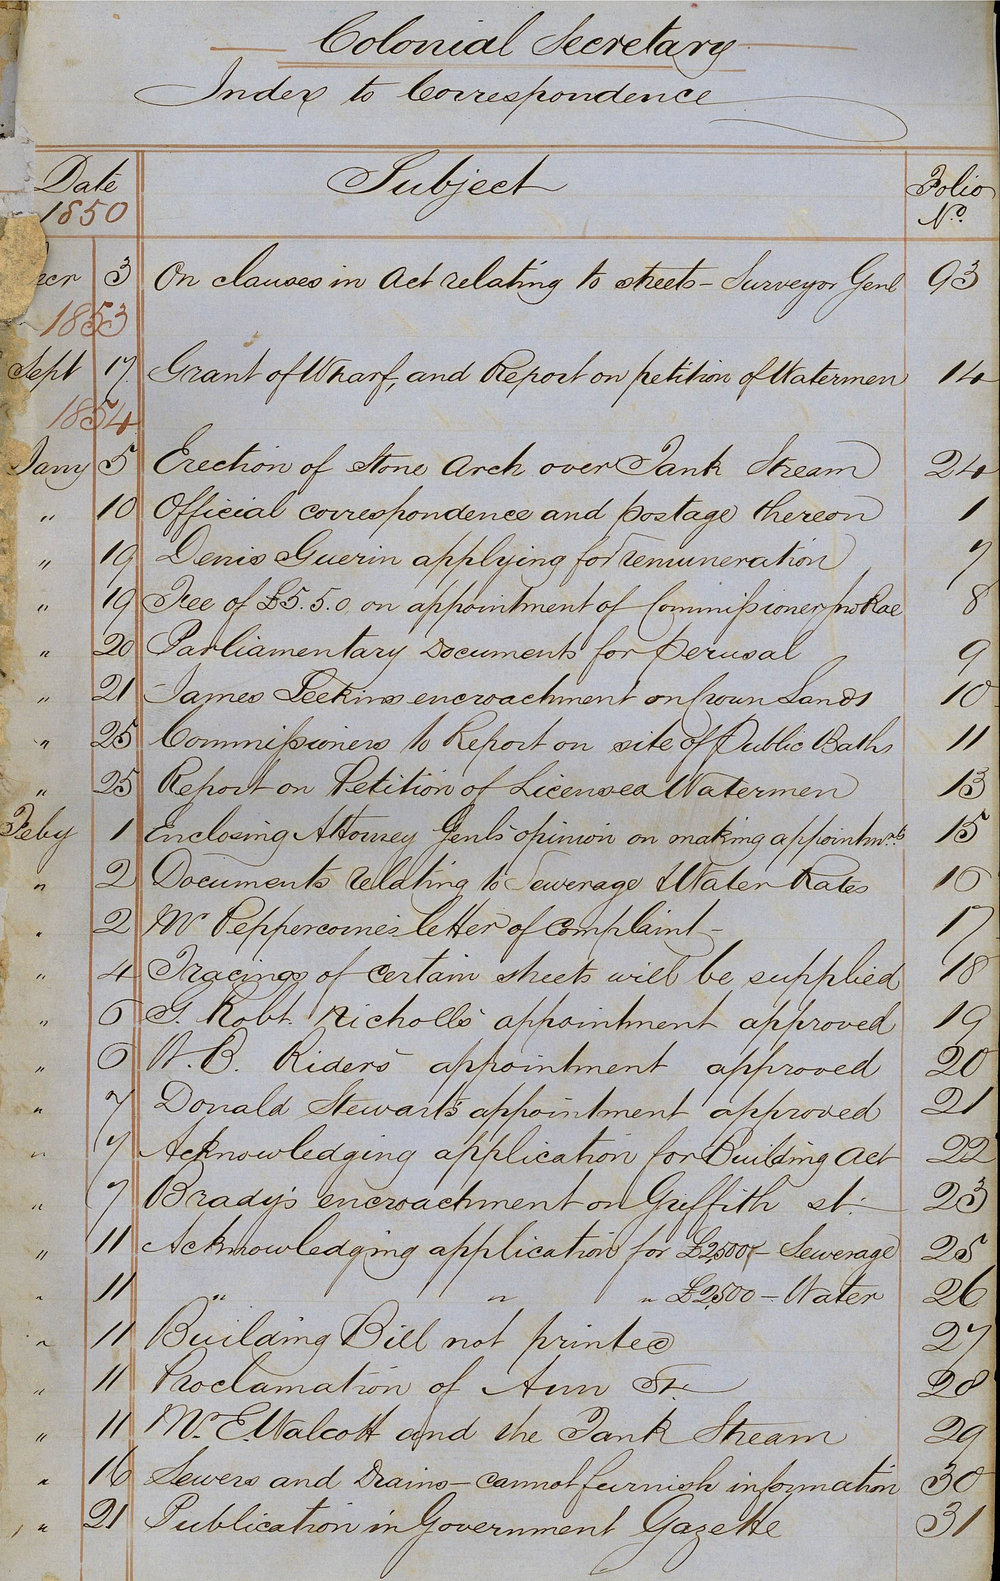 Colonial Secretary
Index to Correspondence
Date Subject Folio
1850 No.
3 On clauses in Act relating to streets - Surveyor Genl 93
1853
Sept 17 Grant of Wharf, and Report on petition of Watermen 14
1854
Jany 5 Erection of Stone Arch over Tank Stream 24
" 10 Official correspondence and postage thereon 1
" 19 Denis Guerin applying for remuneration 7
" 19 Fee of £5.5.0 on appointment of Commissioner Rae 8
" 20 Parliamentary Documents for perusal 9
" 21 James encroachment on Crown Lands 10
" 25 Commissioners to Report on site of Public Baths 11
" 25 Report on Petition of Licensed Watermen 13
Feby 1 Enclosing Attorney Genl's opinion on making appointmts 15
" 2 Documents relating to Sewerage & Water Rates 16
" 2 Mr Peppercorne's letter of Complaint - 17
" 4 Tracings of certain streets will be supplied 18
" 6 G. Robt. Nicholls' appointment approved 19
" 6 W. B. Rider's appointment approved 20
" 7 Donald Stewart's appointment approved 21
" 7 Acknowledging application for Building Act 22
" 7 Brady's encroachment on Griffith st. 23
" 11 Acknowledging application for £2,500 - Sewerage 25
" 11 " " " £2,500 - Water 26
" 11 Building Bill not printed 27
" 11 Proclamation of Ann St. 28
" 11 Mr. E. Walcott and the Tank Stream 29
" 16 Sewers and Drains - cannot furnish information 30
" 21 Publication in Government Gazette 31